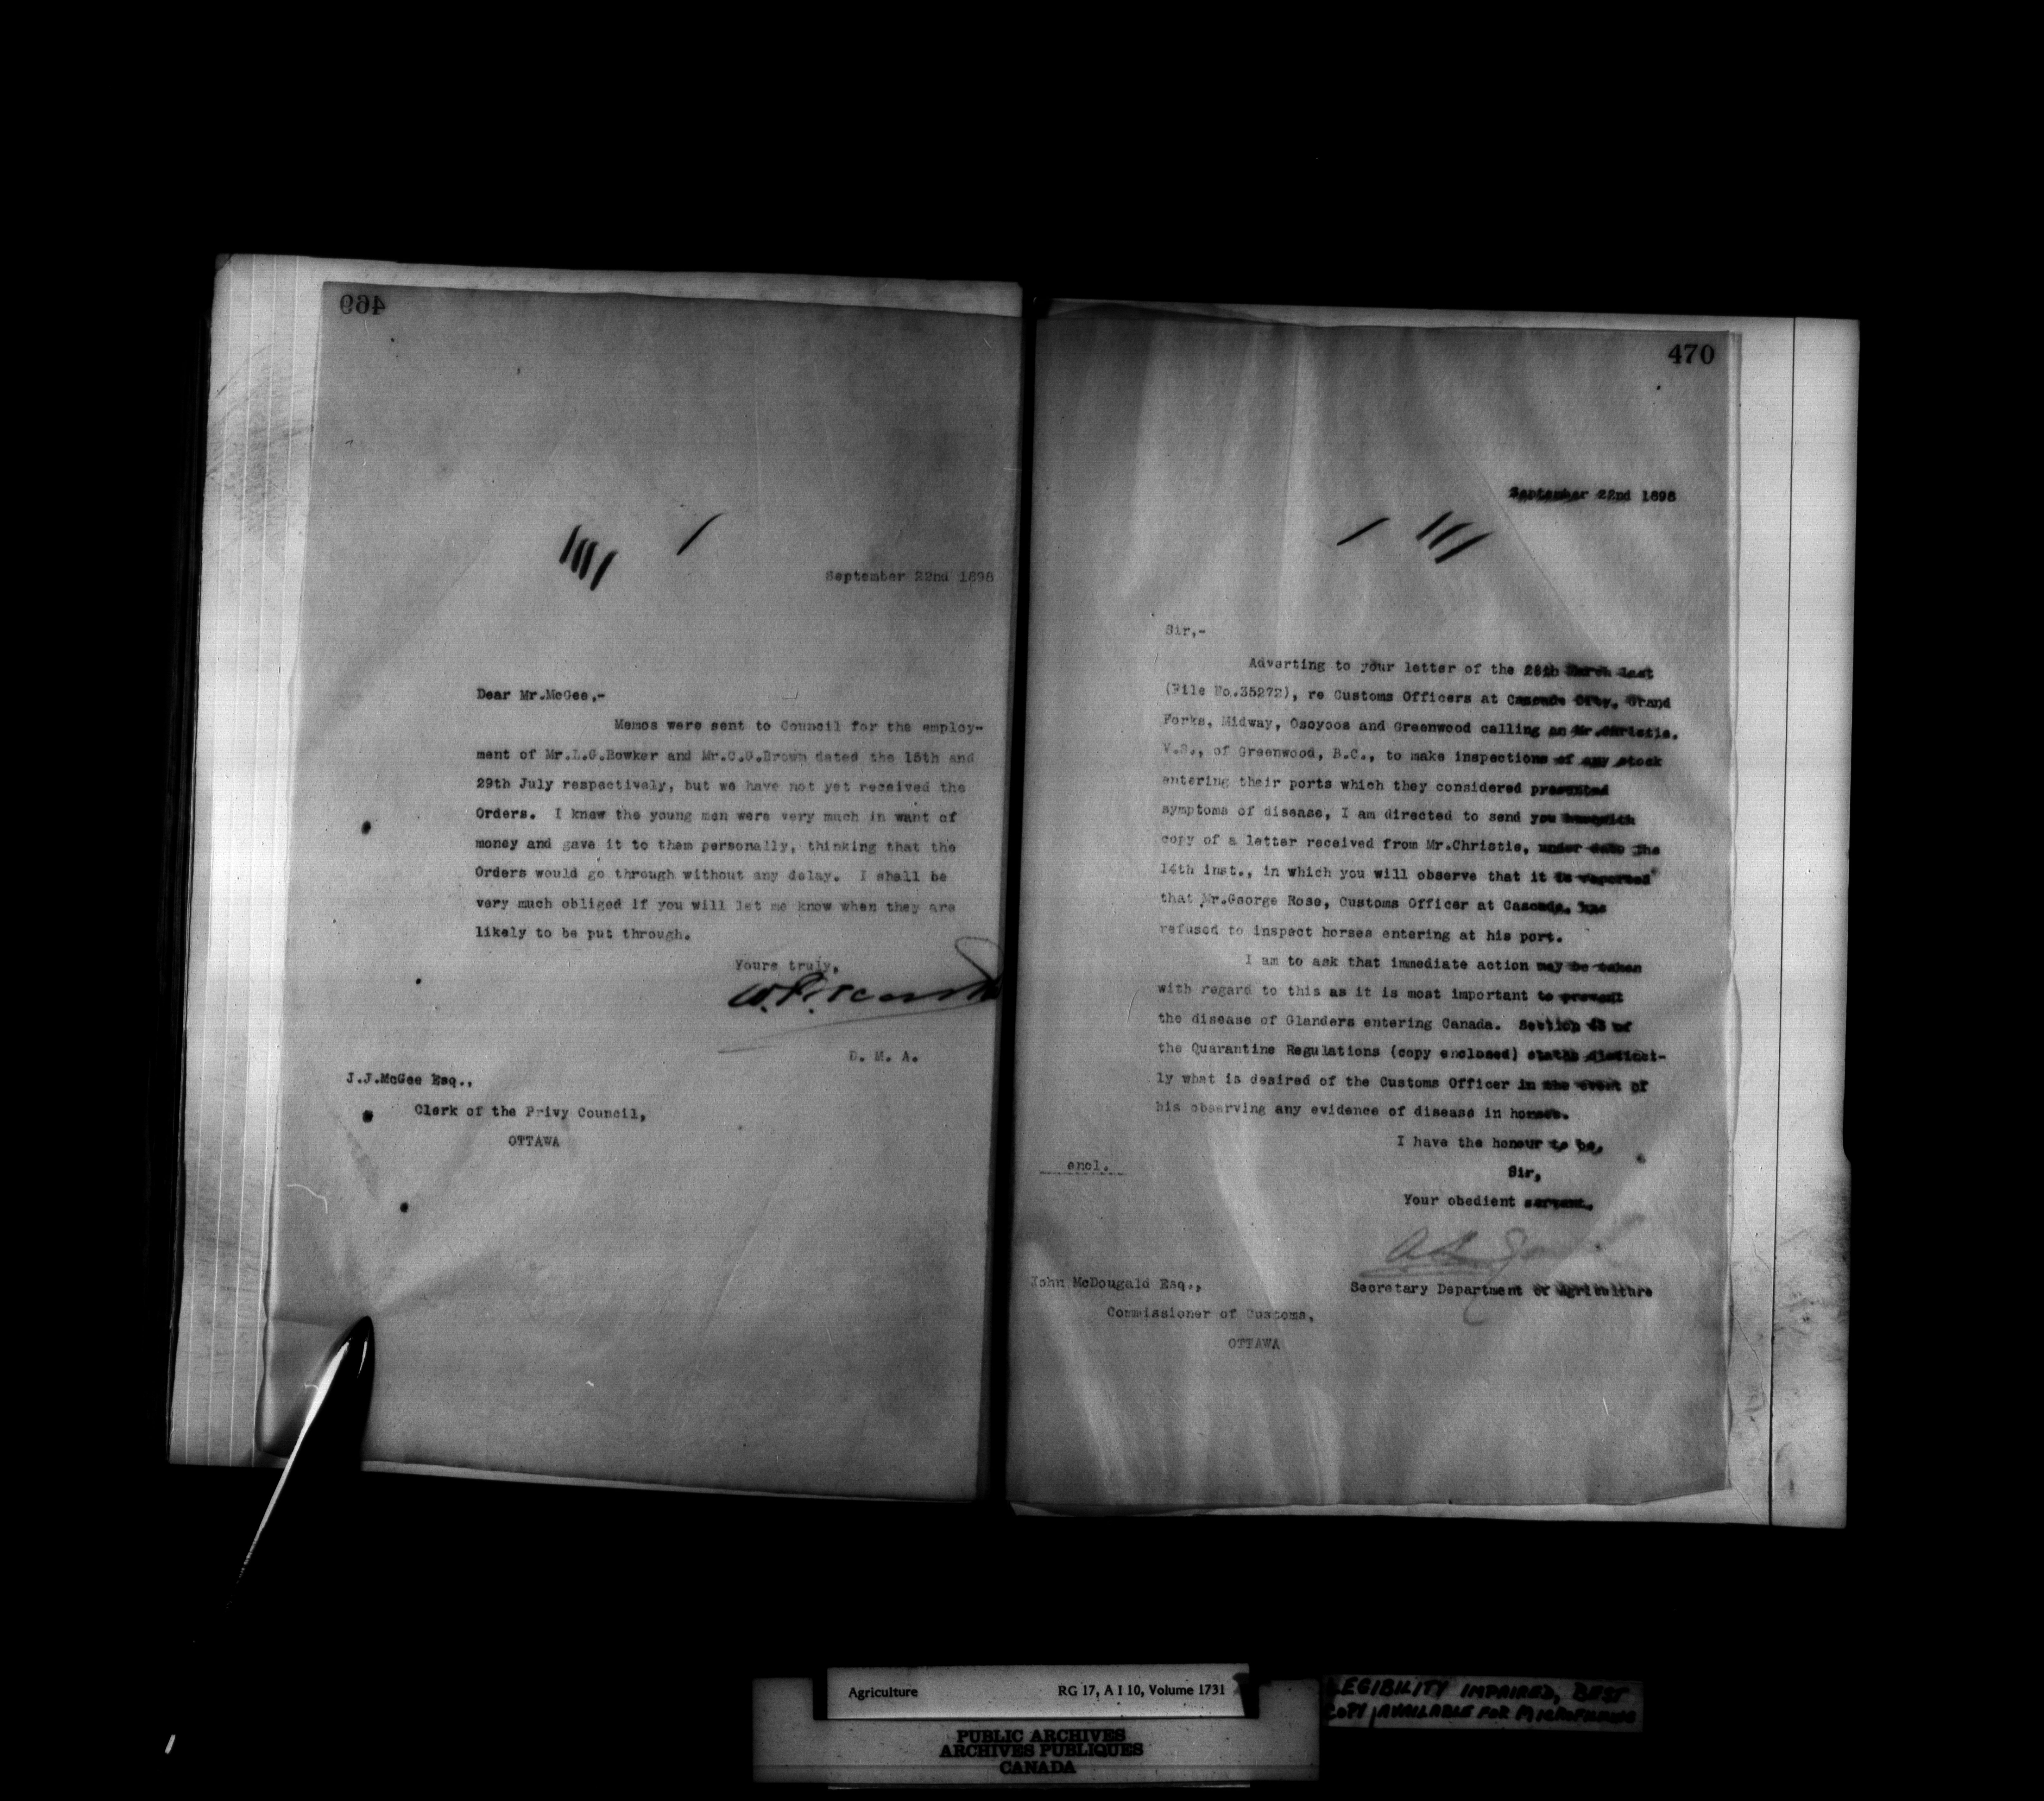 469
September 22nd 1898
Dear Mr.McGee,-
Memos were sent to Council for the employ-
ment of Mr.L.G.Bowker and Mr.C.G.Brown dated the 15th and
29th July respectively, but we have not yet received the
Orders. I knew the young men were very much in want of
money and gave it to them personally, thinking that the
Orders would go through without any delay. I shall be
very much obliged if you will let me know when they are
likely to be put through.
Yours truly,
D. M. A.
J.J.McGee Esq.,
Clerk of the Privy Council,
OTTAWA
470
September 22nd 1898
Sir,-
Adverting to your letter of the 28th March last
(File No.35272), re Customs Officers at Cascade City, Grand
Forks, Midway, Osoyoos and Greenwood calling on Mr.Christie,
V.S., of Greenwood, B.C., to make inspections of any stock
entering their ports which they considered presented
symptoms of disease, I am directed to send you herewith
copy of a letter received from Mr.Christie, under date the
14th inst., in which you will observe that it is reported
that Mr.George Rose, Customs Officer at Cascade, has
refused to inspect horses entering at his port.
I am to ask that immediate action may be taken
with regard to this as it is most important to prevent
the disease of Glanders entering Canada. Section 43 of
the Quarantine Regulations (copy enclosed) states distinct-
ly what is desired of the Customs Officer in the event of
his observing any evidence of disease in horses.
I have the honour to be,
Sir,
Your obedient servant,
encl.
Secretary Department of Agriculture
John McDougald Esq.,
Commissioner of Customs,
OTTAWA
Agriculture RG 17, A I 10, Volume 1731
PUBLIC ARCHIVES
ARCHIVES PUBLIQUES
CANADA
LEGIBILITY IMPAIRED, BEST
COPY AVAILABLE FOR MICROFILMING